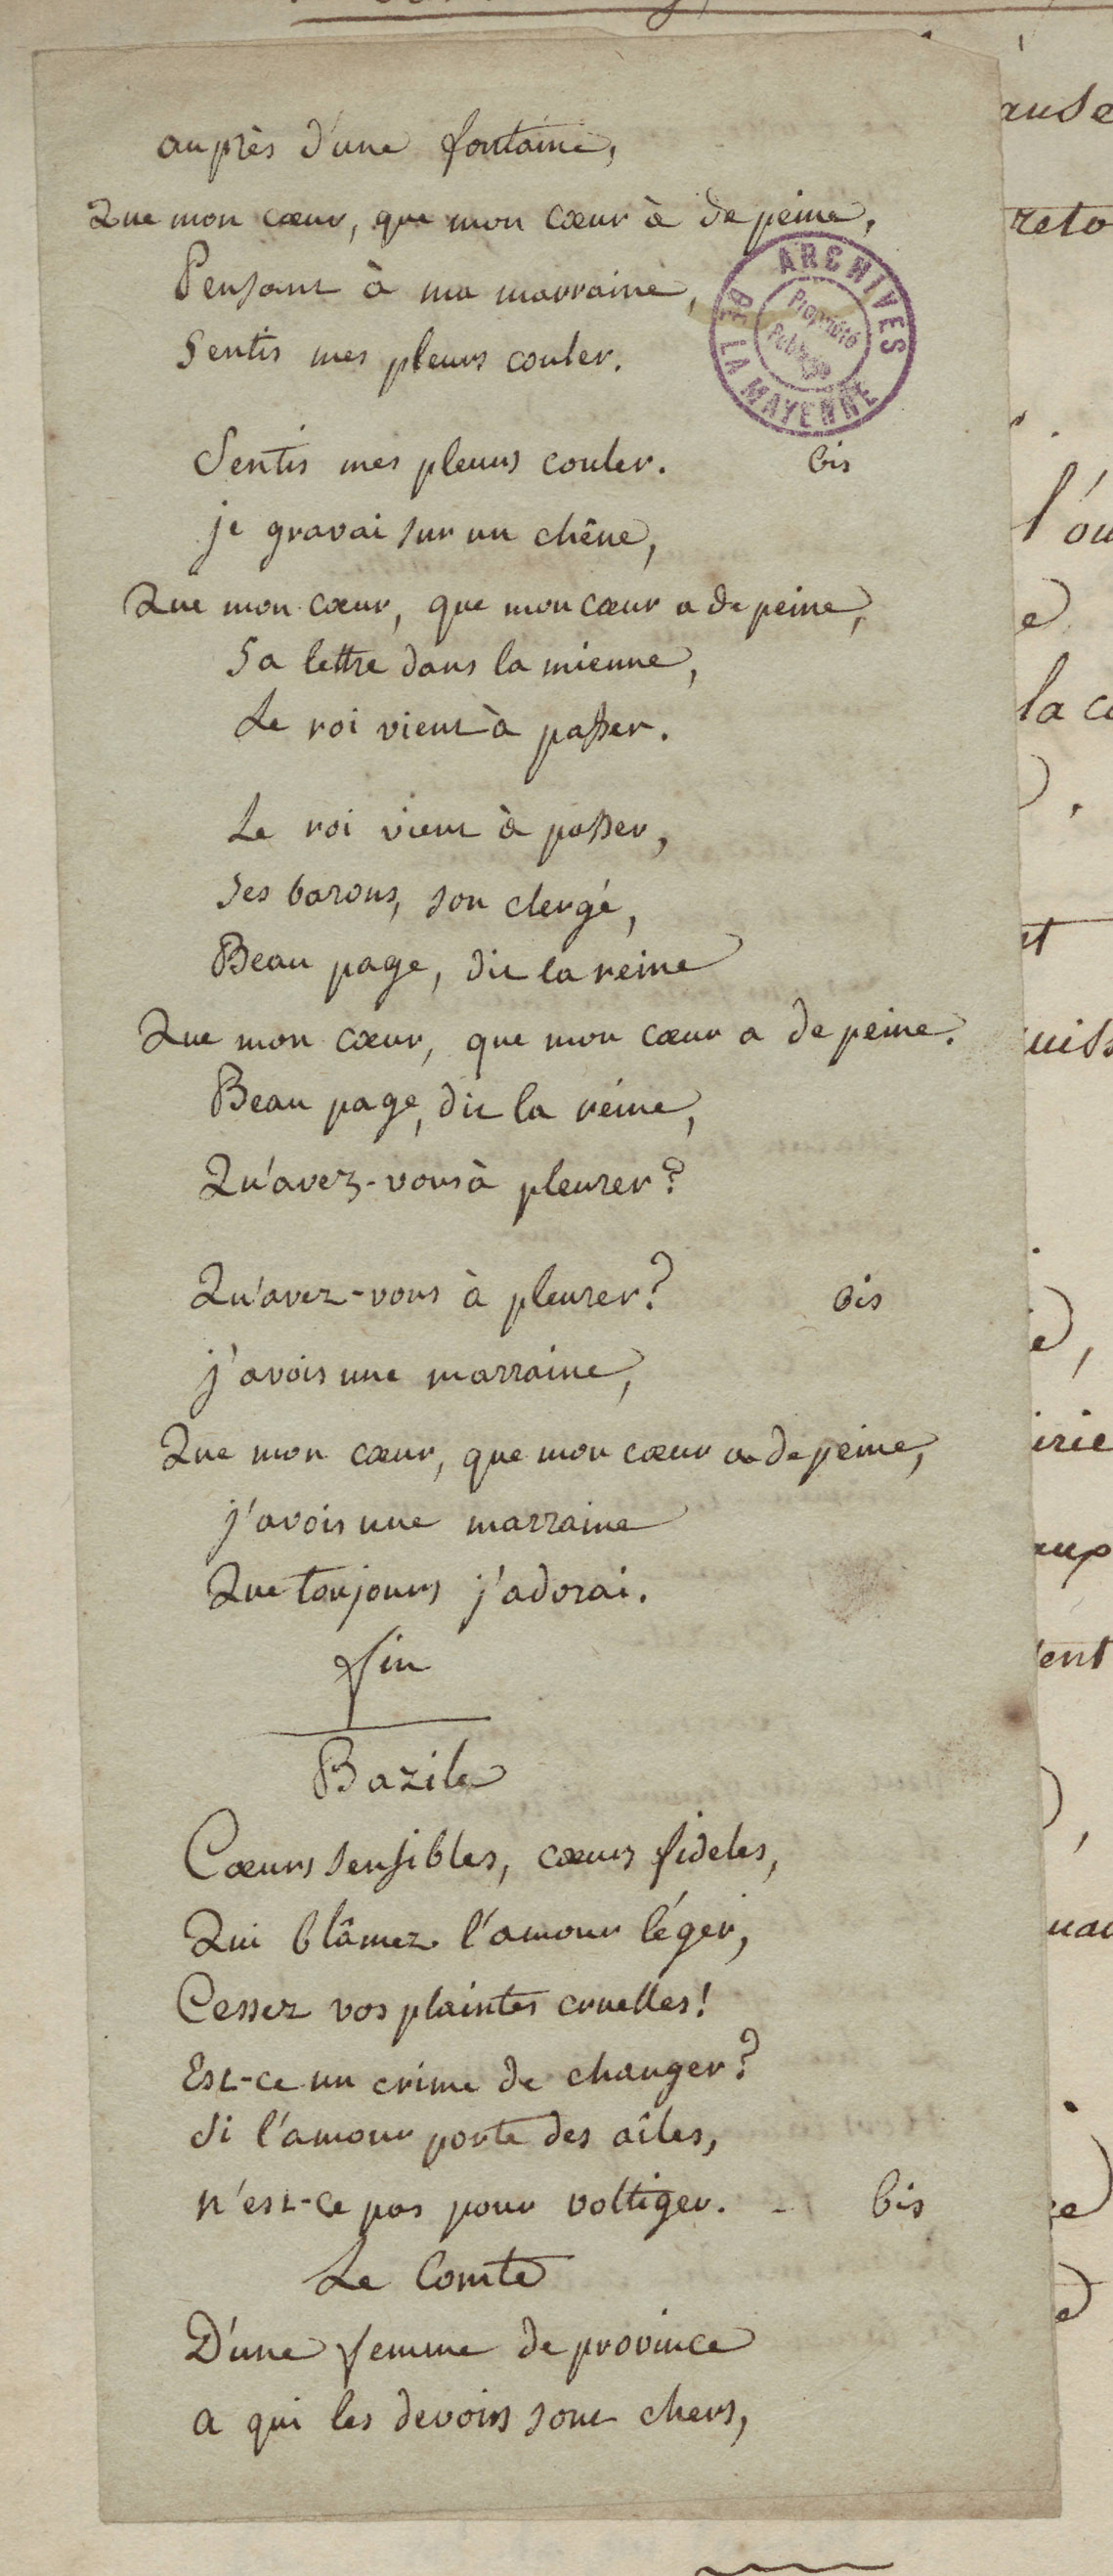 auprès d'une fontaine,
Que mon cœur, que mon cœur à de peine,
Pensant à ma marraine,
Sentis mes pleurs couler.
ARCHIVES DE LA MAYENNE
Propriété Publique
Sentis mes pleurs couler. bis
je gravai sur un chêne,
Que mon cœur, que mon cœur a de peine,
Sa lettre dans la mienne,
Le roi vient à passer.
Le roi vient à passer,
Ses barons, son clergé,
Beau page, dit la reine
Que mon cœur, que mon cœur a de peine.
Beau page, dit la reine,
Qu'avez-vous à pleurer?
Qu'avez-vous à pleurer? bis
j'avois une marraine,
Que mon cœur, que mon cœur a de peine,
j'avois une marraine
Que toujours j'adorai.
fin
Bazile
Cœurs sensibles, cœurs fideles,
Qui blâmez l'amour léger,
Cessez vos plaintes cruelles!
Est-ce un crime de changer?
Si l'amour porte des aîles,
n'est-ce pas pour voltiger. - bis
Le Comte
D'une femme de province
a qui les devoirs sont chers,